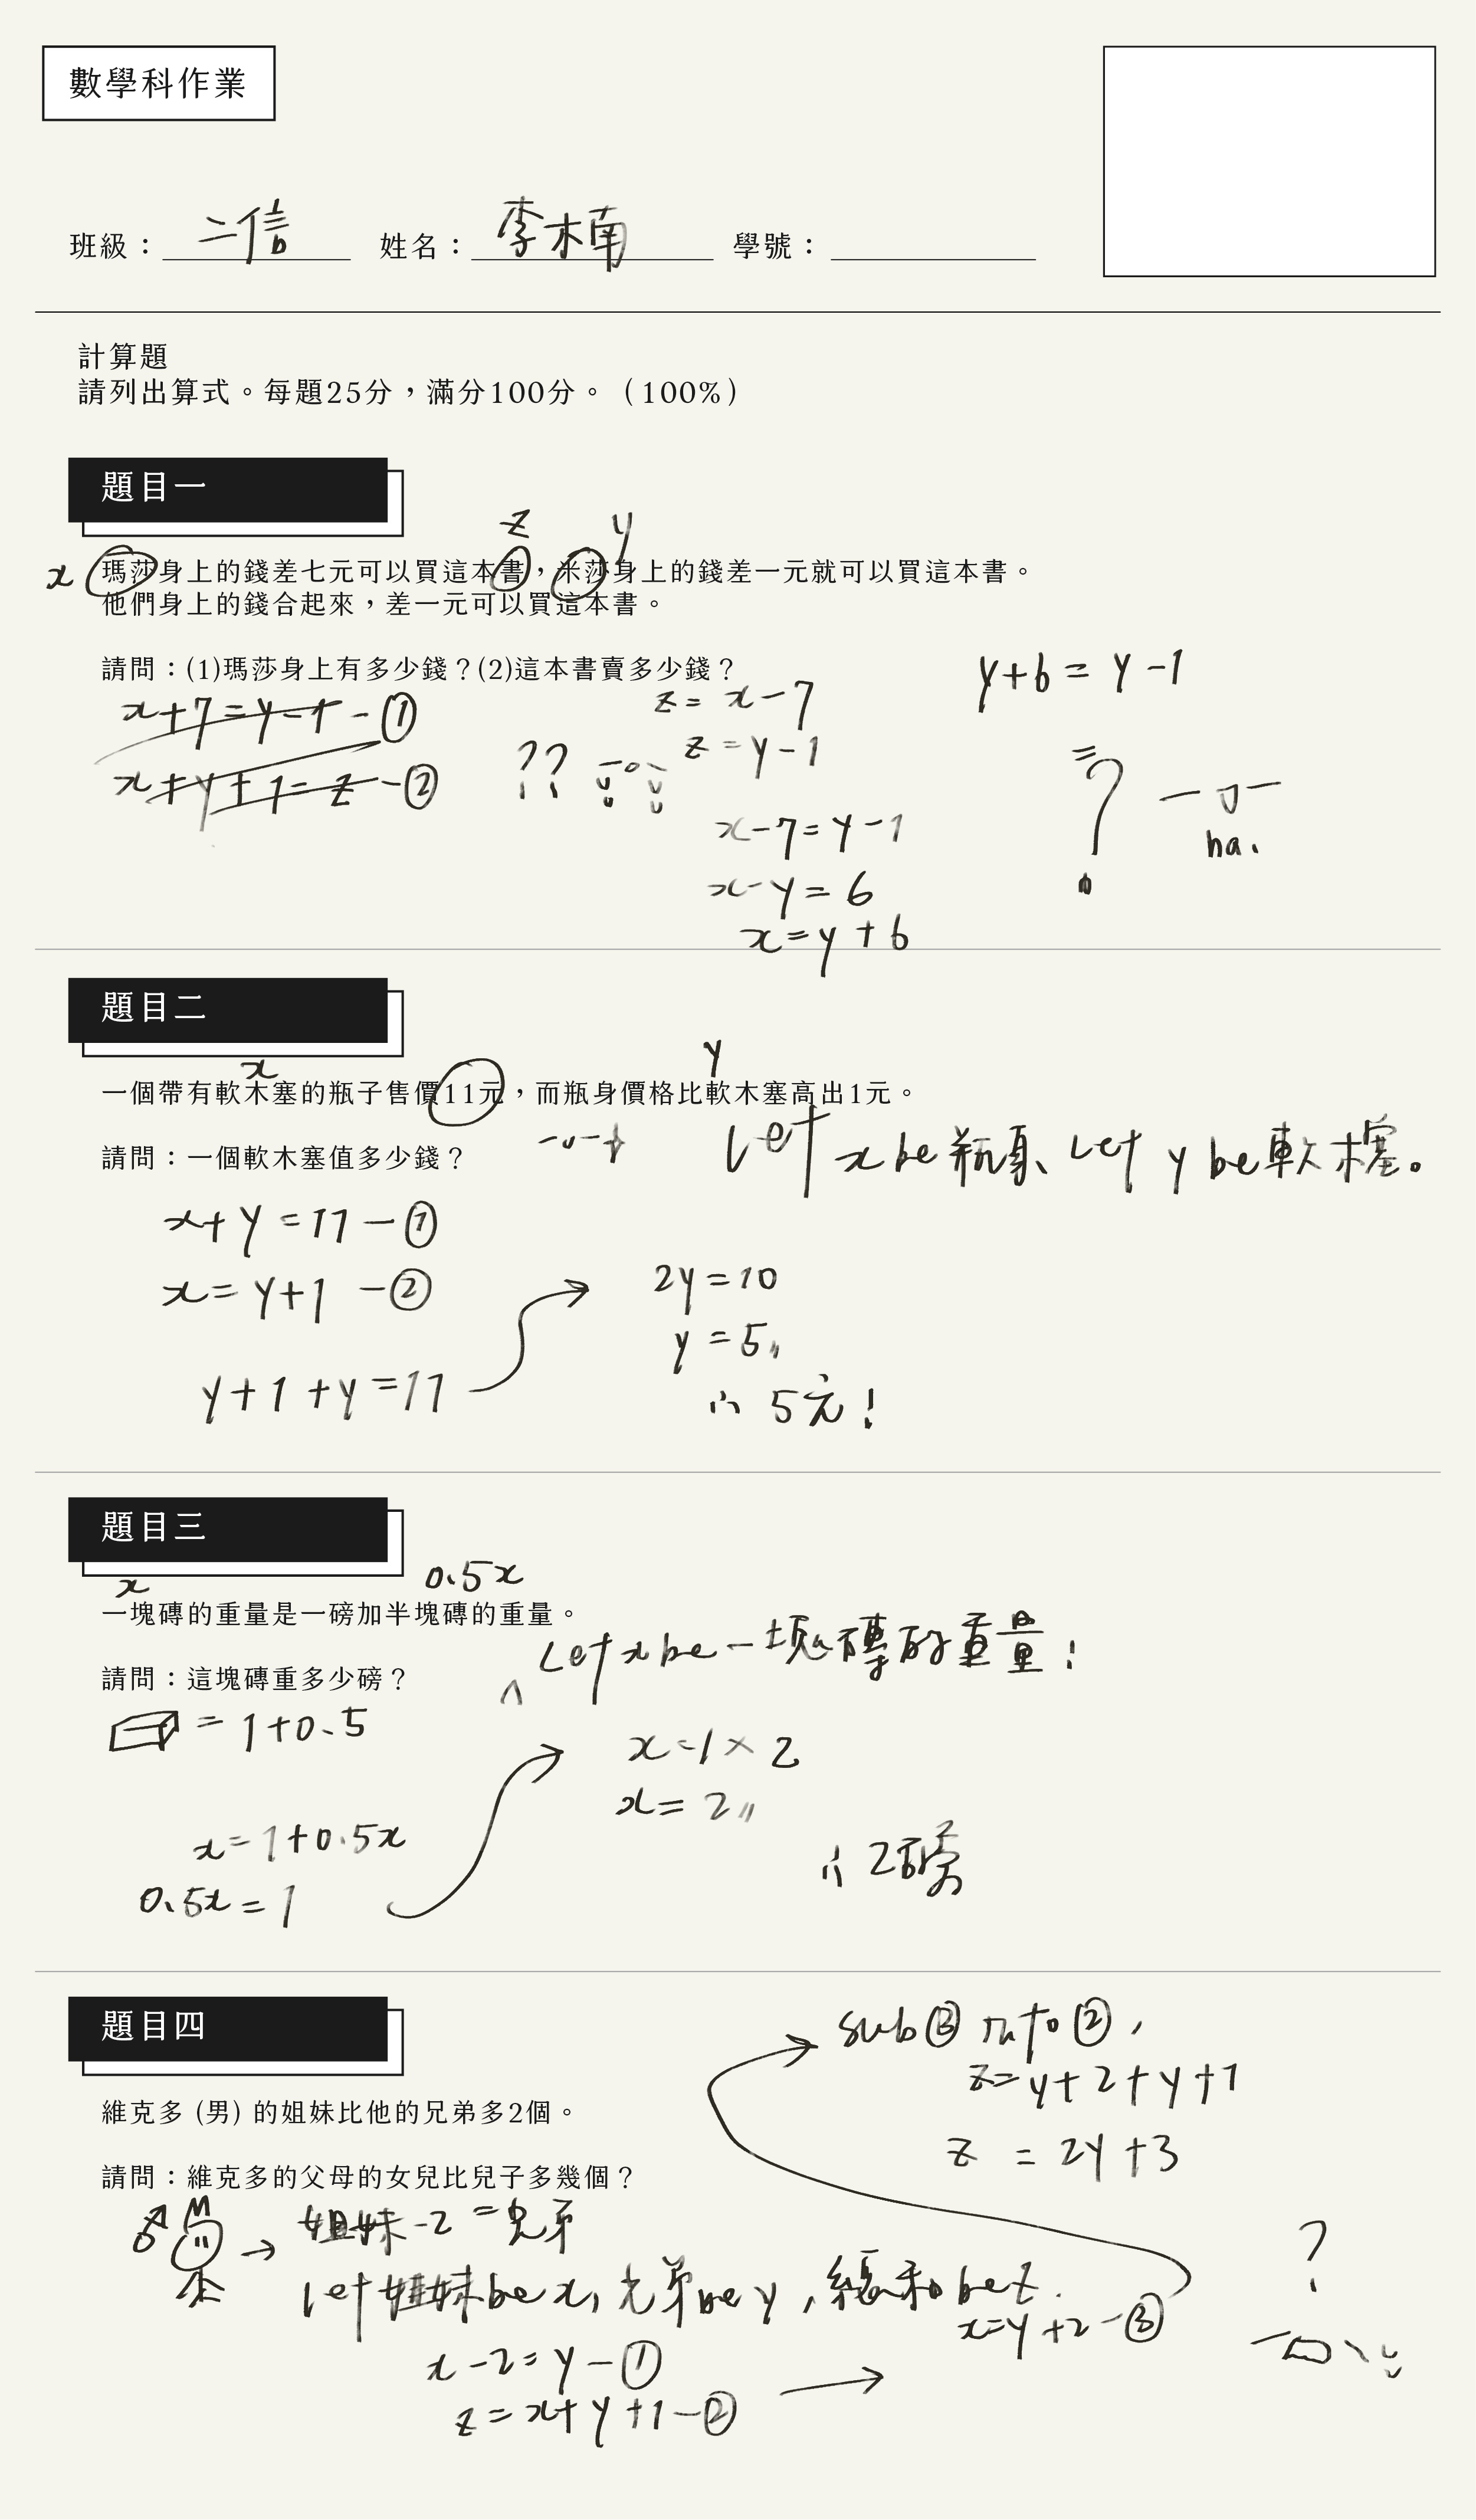 數學科作業
班級： 二信 姓名： 李木南 學號：
計算題
請列出算式。每題25分，滿分100分。（100%）
題目一
z y
x 瑪莎身上的錢差七元可以買這本書，米莎身上的錢差一元就可以買這本書。
他們身上的錢合起來，差一元可以買這本書。
請問：(1)瑪莎身上有多少錢？(2)這本書賣多少錢？
x+7=y-1-①
x+y+1=z-②
??
z=x-7
z=y-1
x-7=y-1
x-y=6
x=y+6
y+6=y-1
?
ha.
題目二
x y
一個帶有軟木塞的瓶子售價11元，而瓶身價格比軟木塞高出1元。
請問：一個軟木塞值多少錢？
Let x be 瓶身、Let y be 軟木塞。
x+y=11-①
x=y+1-②
y+1+y=11
2y=10
y=5
∴5元!
題目三
x 0.5x
一塊磚的重量是一磅加半塊磚的重量。
請問：這塊磚重多少磅？
Let x be 一塊磚的重量!
=1+0.5
x=1+0.5x
0.5x=1
x=1×2
x=2
∴2磅
題目四
維克多 (男) 的姐妹比他的兄弟多2個。
請問：維克多的父母的女兒比兒子多幾個？
♂ → 姐妹-2=兄弟
let 姐妹 be x, 兄弟 be y, 總和 be z.
x-2=y-①
z=x+y+1-②
x=y+2-③
sub③ into②,
z=y+2+y+1
z=2y+3
?